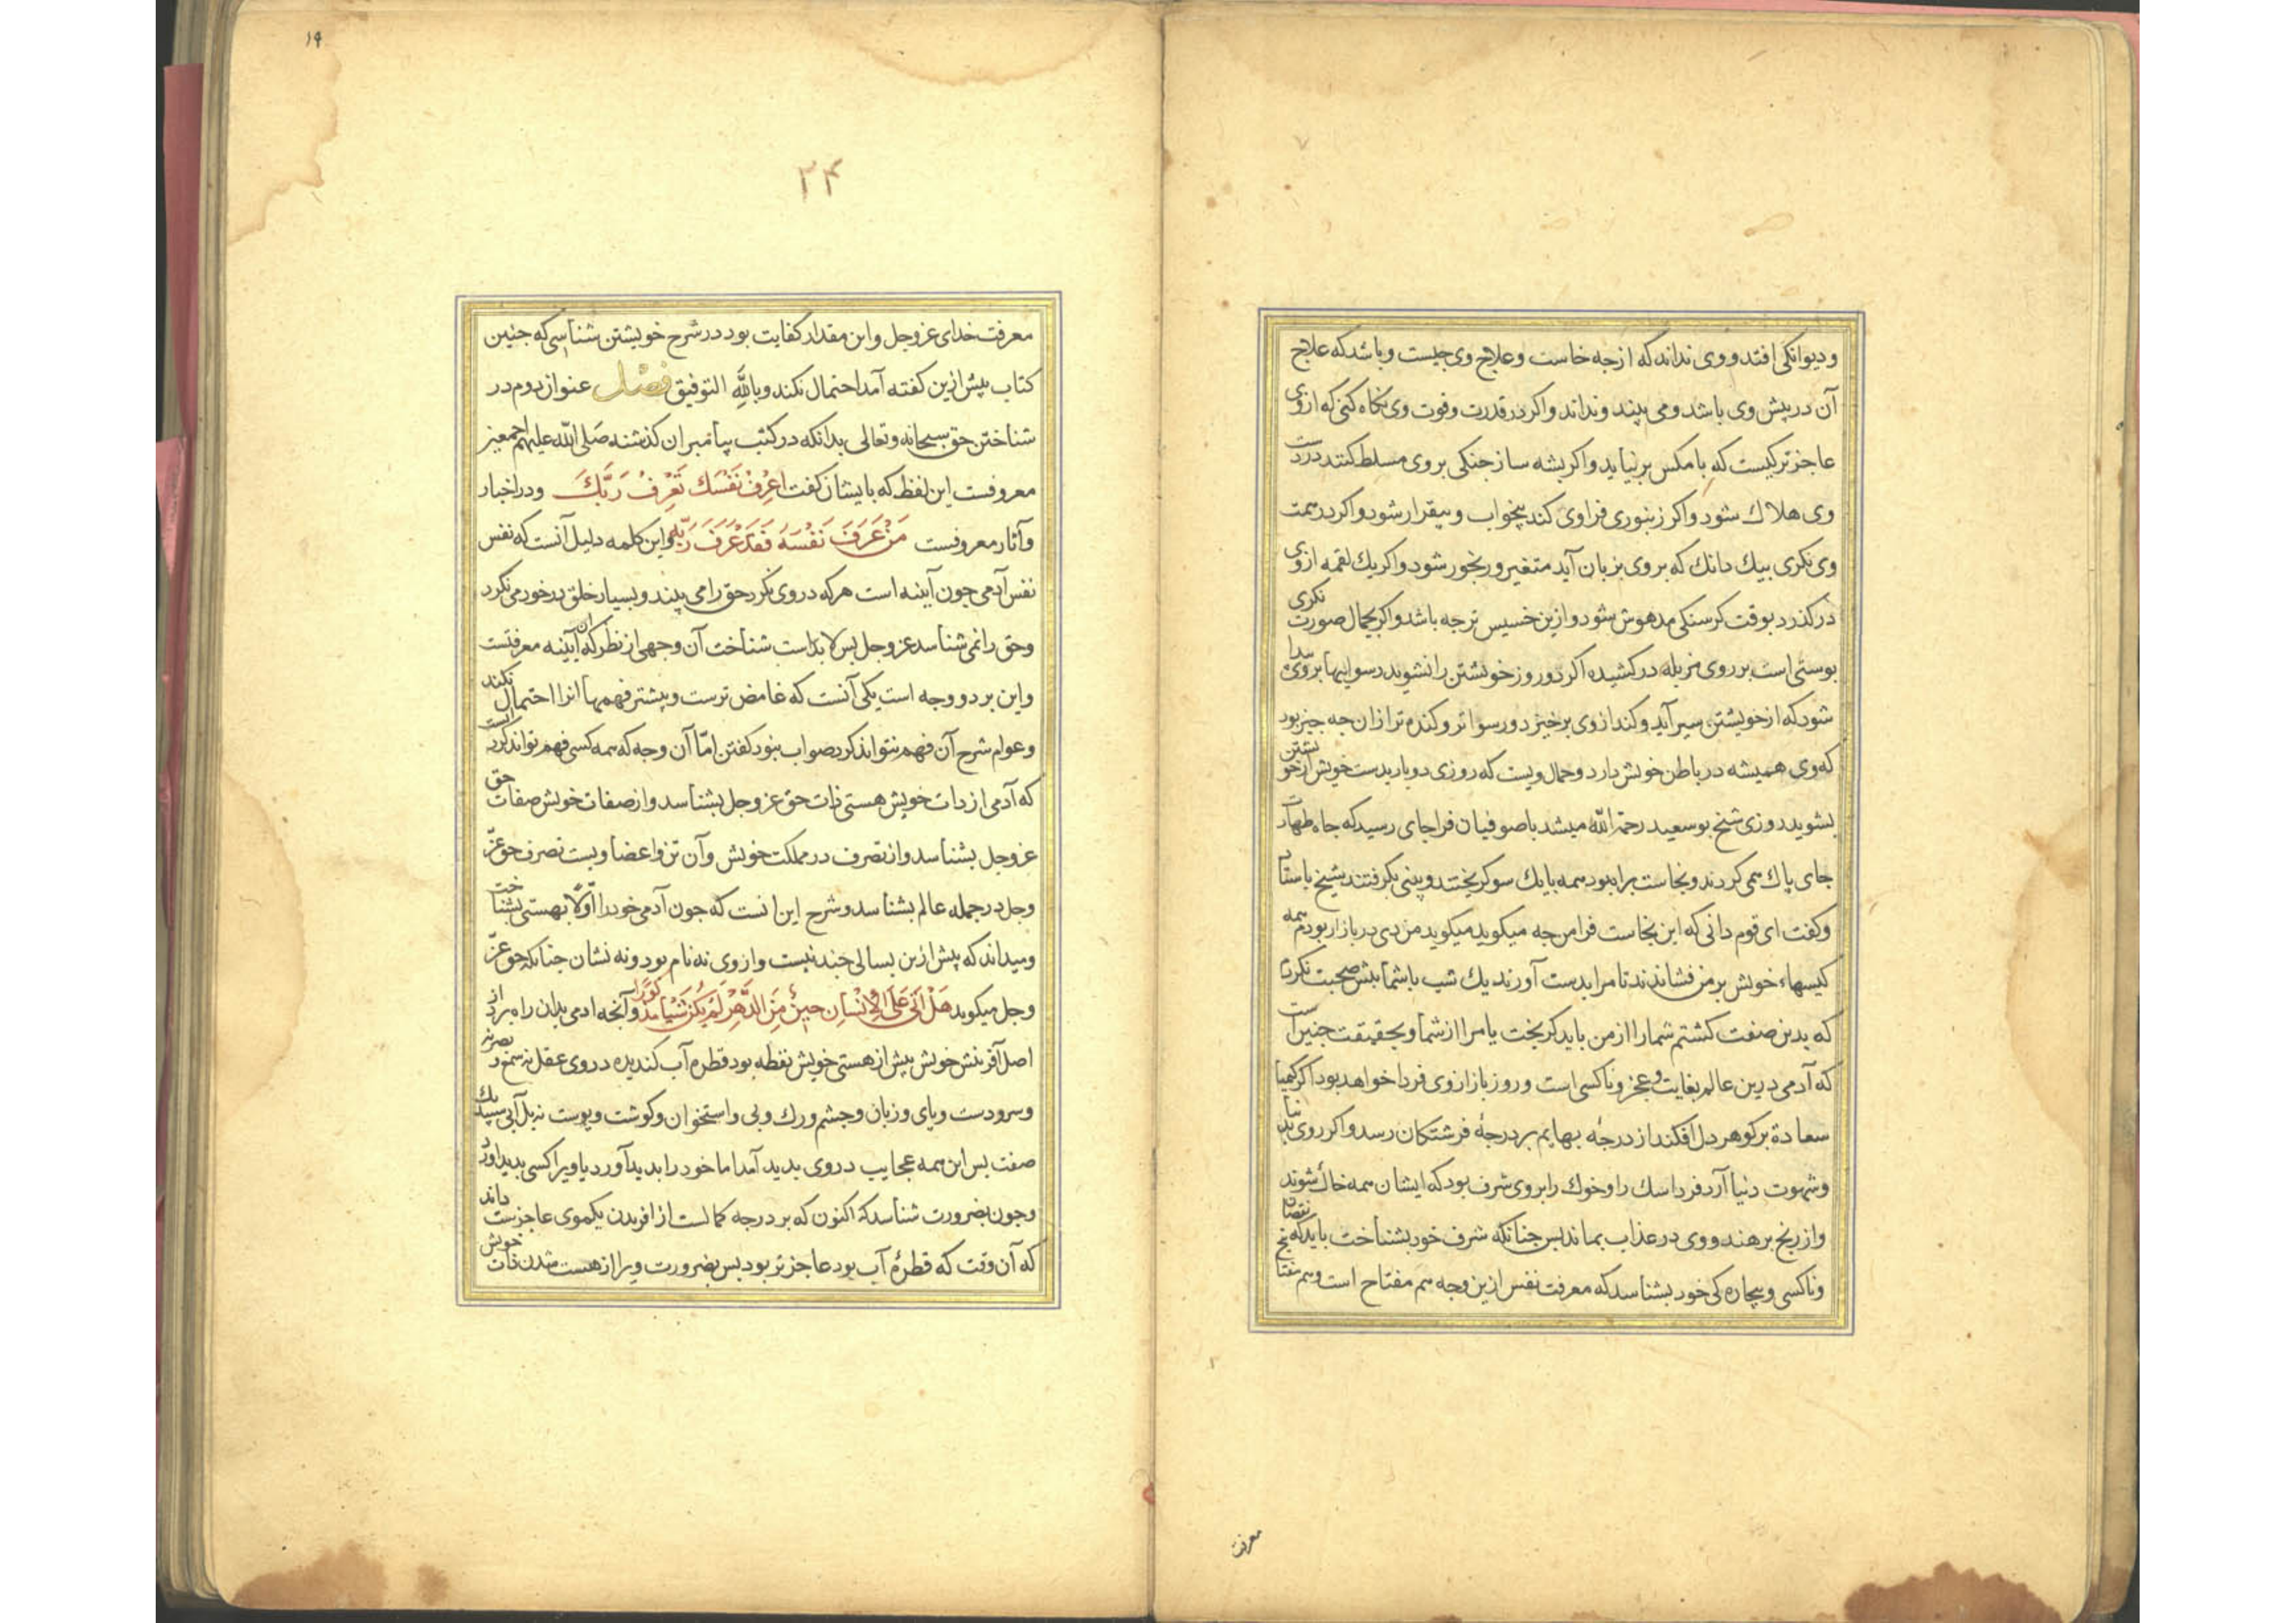 ودیوانکی افتد و وی نداند که از جه خاست وعلاج وی جیست وباشد که علاج
آن در پیش وی باشد ومی بیند ونداند واکر در قدرت وقوت وی نکاه کنی که از وی
عاجزتر کیست که با مکس برنیاید واکر پشه سارجنکی بر وی مسلط کنند در دست
وی هلاك شود واکر زنبوری فراوی کند بیخواب وبیقرار شود واکر در همت
وی نکری بیك دانك که بر وی بزیان آید متغیر ورنجور شود واکر یك لقمه از وی
درکذرد بوقت کرسنکی مدهوش شود وازین خسیس تر جه باشد واکر بجمال صورت نکری
بوستی است بر روی مزبله درکشیده اکر دو روز خویشتن را نشوید رسوایها بر وی پیدا
شود که از خویشتن سیر آید وکند از وی برخیزد ورسواتر وکنده تر از ان جه جیز بود
که وی همیشه در باطن خویش دارد وحمال ویست که روزی دو بار بدست خویش از خویشتن
بشوید روزی شیخ بوسعید رحمة الله میشد با صوفیان فراجای رسید که جاه طهارت
جای پاك همی کردند ونجاست بر راه بود همه بایك سو کریختند وبینی بکرفتند شیخ باستاد
وکفت ای قوم دانی که این نجاست فرا من جه میکوید میکوید من دی در بازار بودم همه
کیسهاء خویش بر من فشاندند تا مرا بدست آورند یك شب با شما بیش صحبت نکردم
که بدین صفت کشتم شما را از من باید کریخت یا مرا از شما وبحقیقت جنین است
که آدمی درین عالم بغایت عجز وناکسی است وروز بازار وی فردا خواهد بود اکر کیمیا
سعادة بر کوهر دل افکند از درجهٔ بهایم بر درجهٔ فرشتکان رسد واکر روی بدنیا
وشهوت دنیا آرد فردا سك را وخوك را بر وی شرف بود که ایشان همه خاك شوند
واز رنج برهند و وی در عذاب بماند بس جنانکه شرف خود بشناخت باید که نقصان
وناکسی وبیچاره کی خود بشناسد که معرفت نفس ازین وجه هم مفتاح است وهم مفتا
معرفت
۱۹
۲۴
معرفت خدای عزوجل واین مقدار کفایت بود در شرح خویشتن شناسی که جنین
کتاب بیش ازین کفته آمد احتمال نکند وبالله التوفیق فصل عنوان دوم در
شناختن حق سبحانه وتعالی بدانکه در کتب پیامبران کذشته صلی الله علیهم اجمعین
معروفست این لفظ که با یشان کفت اعْرِفْ نَفْسَكَ تَعْرِفْ رَبَّكَ ودر اخبار
وآثار معروفست مَنْ عَرَفَ نَفْسَهُ فَقَدْ عَرَفَ رَبَّهُ واین کلمه دلیل آنست که نفس
نفس آدمی جون آیینه است هر که در وی نکرد حق را می بیند وبسیار خلق در خود می نکرد
وحق را نمی شناسد عزوجل بس لابد است شناخت آن وجهی از نظر که آن آیینه معرفتست
واین بر دو وجه است یکی آنست که غامض ترست وبیشتر فهمها انرا احتمال نکند
وعوام شرح آن فهم نتواند کرد صواب نبود کفتن امّا آن وجه که همه کسی فهم تواند کرد است
که آدمی از ذات خویش هستی ذات حق عزوجل بشناسد واز صفات خویش صفات حق
عزوجل بشناسد واز تصرف در مملکت خویش وآن تن واعضا ویست تصرف حق عزّ
وجل در جمله عالم بشناسد وشرح این انست که جون آدمی خود را اوّلا بهستی بشناخت
ومیداند که پیش ازین بسالی جند نیست واز وی نه نام بود ونه نشان جنانکه حق عزّ
وجل میکوید هَلْ اَتَی عَلَی الْاِنْسَانِ حِینٌ مِنَ الدَّهْرِ لَمْ یَکُنْ شَیْئًا مَذْکُورًا وآنجه ادمی بدان راه برد از
اصل آفرینش خویش پیش از هستی خویش نطفه بود قطره آب کندیده در وی عقل نه سمع وبصر نه
وسر ودست وپای وزبان وجشم ورك وپی واستخوان وکوشت وپوست نه بل آبی سپید یك
صفت بس این همه عجایب در وی بدید آمد اما خود را بدید آورد یا ویرا کسی بدید اورد
وجون بضرورت شناسد که اکنون که بر درجه کمالست از افریدن یکموی عاجزست داند
که آن وقت که قطرهٔ آب بود عاجزتر بود بس بضرورت ویرا از هست شدن ذات خویش